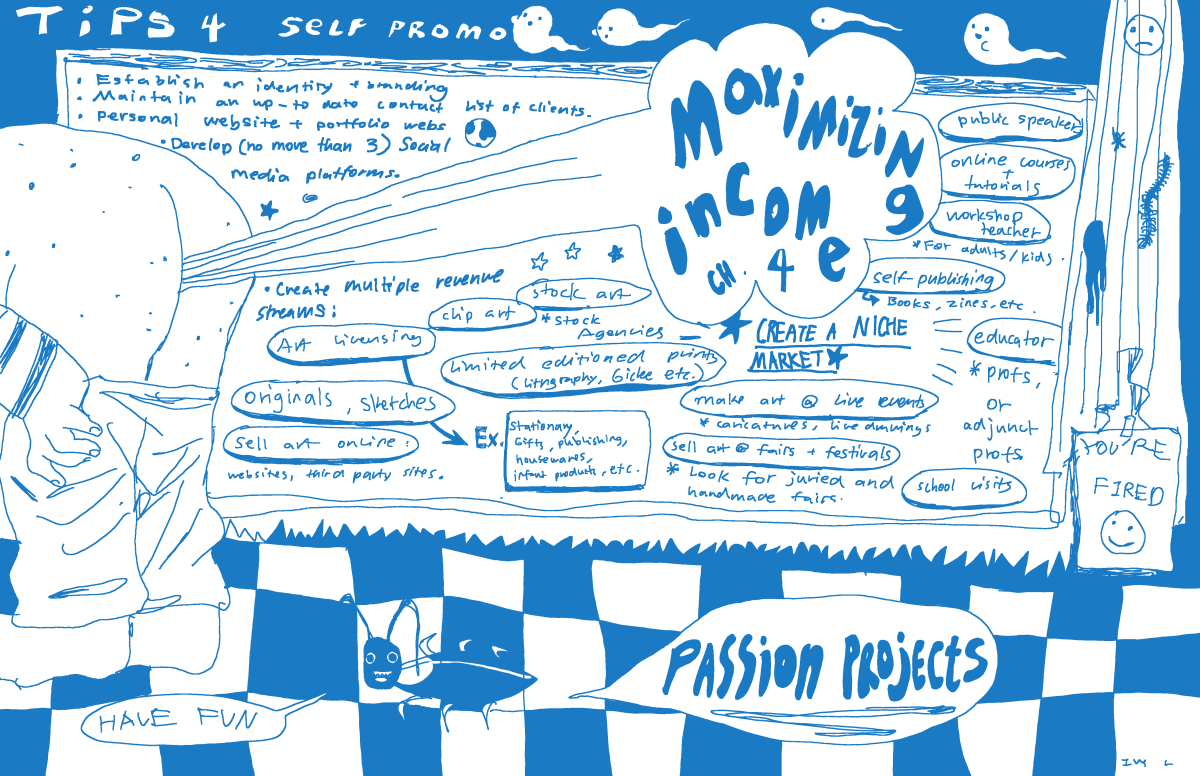 TiPS 4 SELF PROMO
• Establish an identity + branding
• Maintain an up-to date contact list of clients.
• personal website + portfolio webs
• Develop (no more than 3) Social
media platforms.
Maximizing
income
CH. 4
public speaker
online courses
+
tutorials
workshop
teacher
* For adults/kids.
self publishing
Books, zines, etc.
• Create multiple revenue
streams:
stock art
* Stock
Agencies
clip art
Art licensing
Limited editioned prints
(Lithography, Giclee etc.)
originals, sketches
sell art online:
websites, third party sites.
Ex.
Stationary,
Gifts, publishing,
housewares,
infant products, etc.
CREATE A NICHE
MARKET
make art @ live events
* caricatures, live drawings
sell art @ fairs + festivals
* Look for juried and
handmade fairs.
educator
* profs,
or
adjunct
profs
school visits
YOU'RE
FIRED
PASSION PROJECTS
HAVE FUN
IVY L